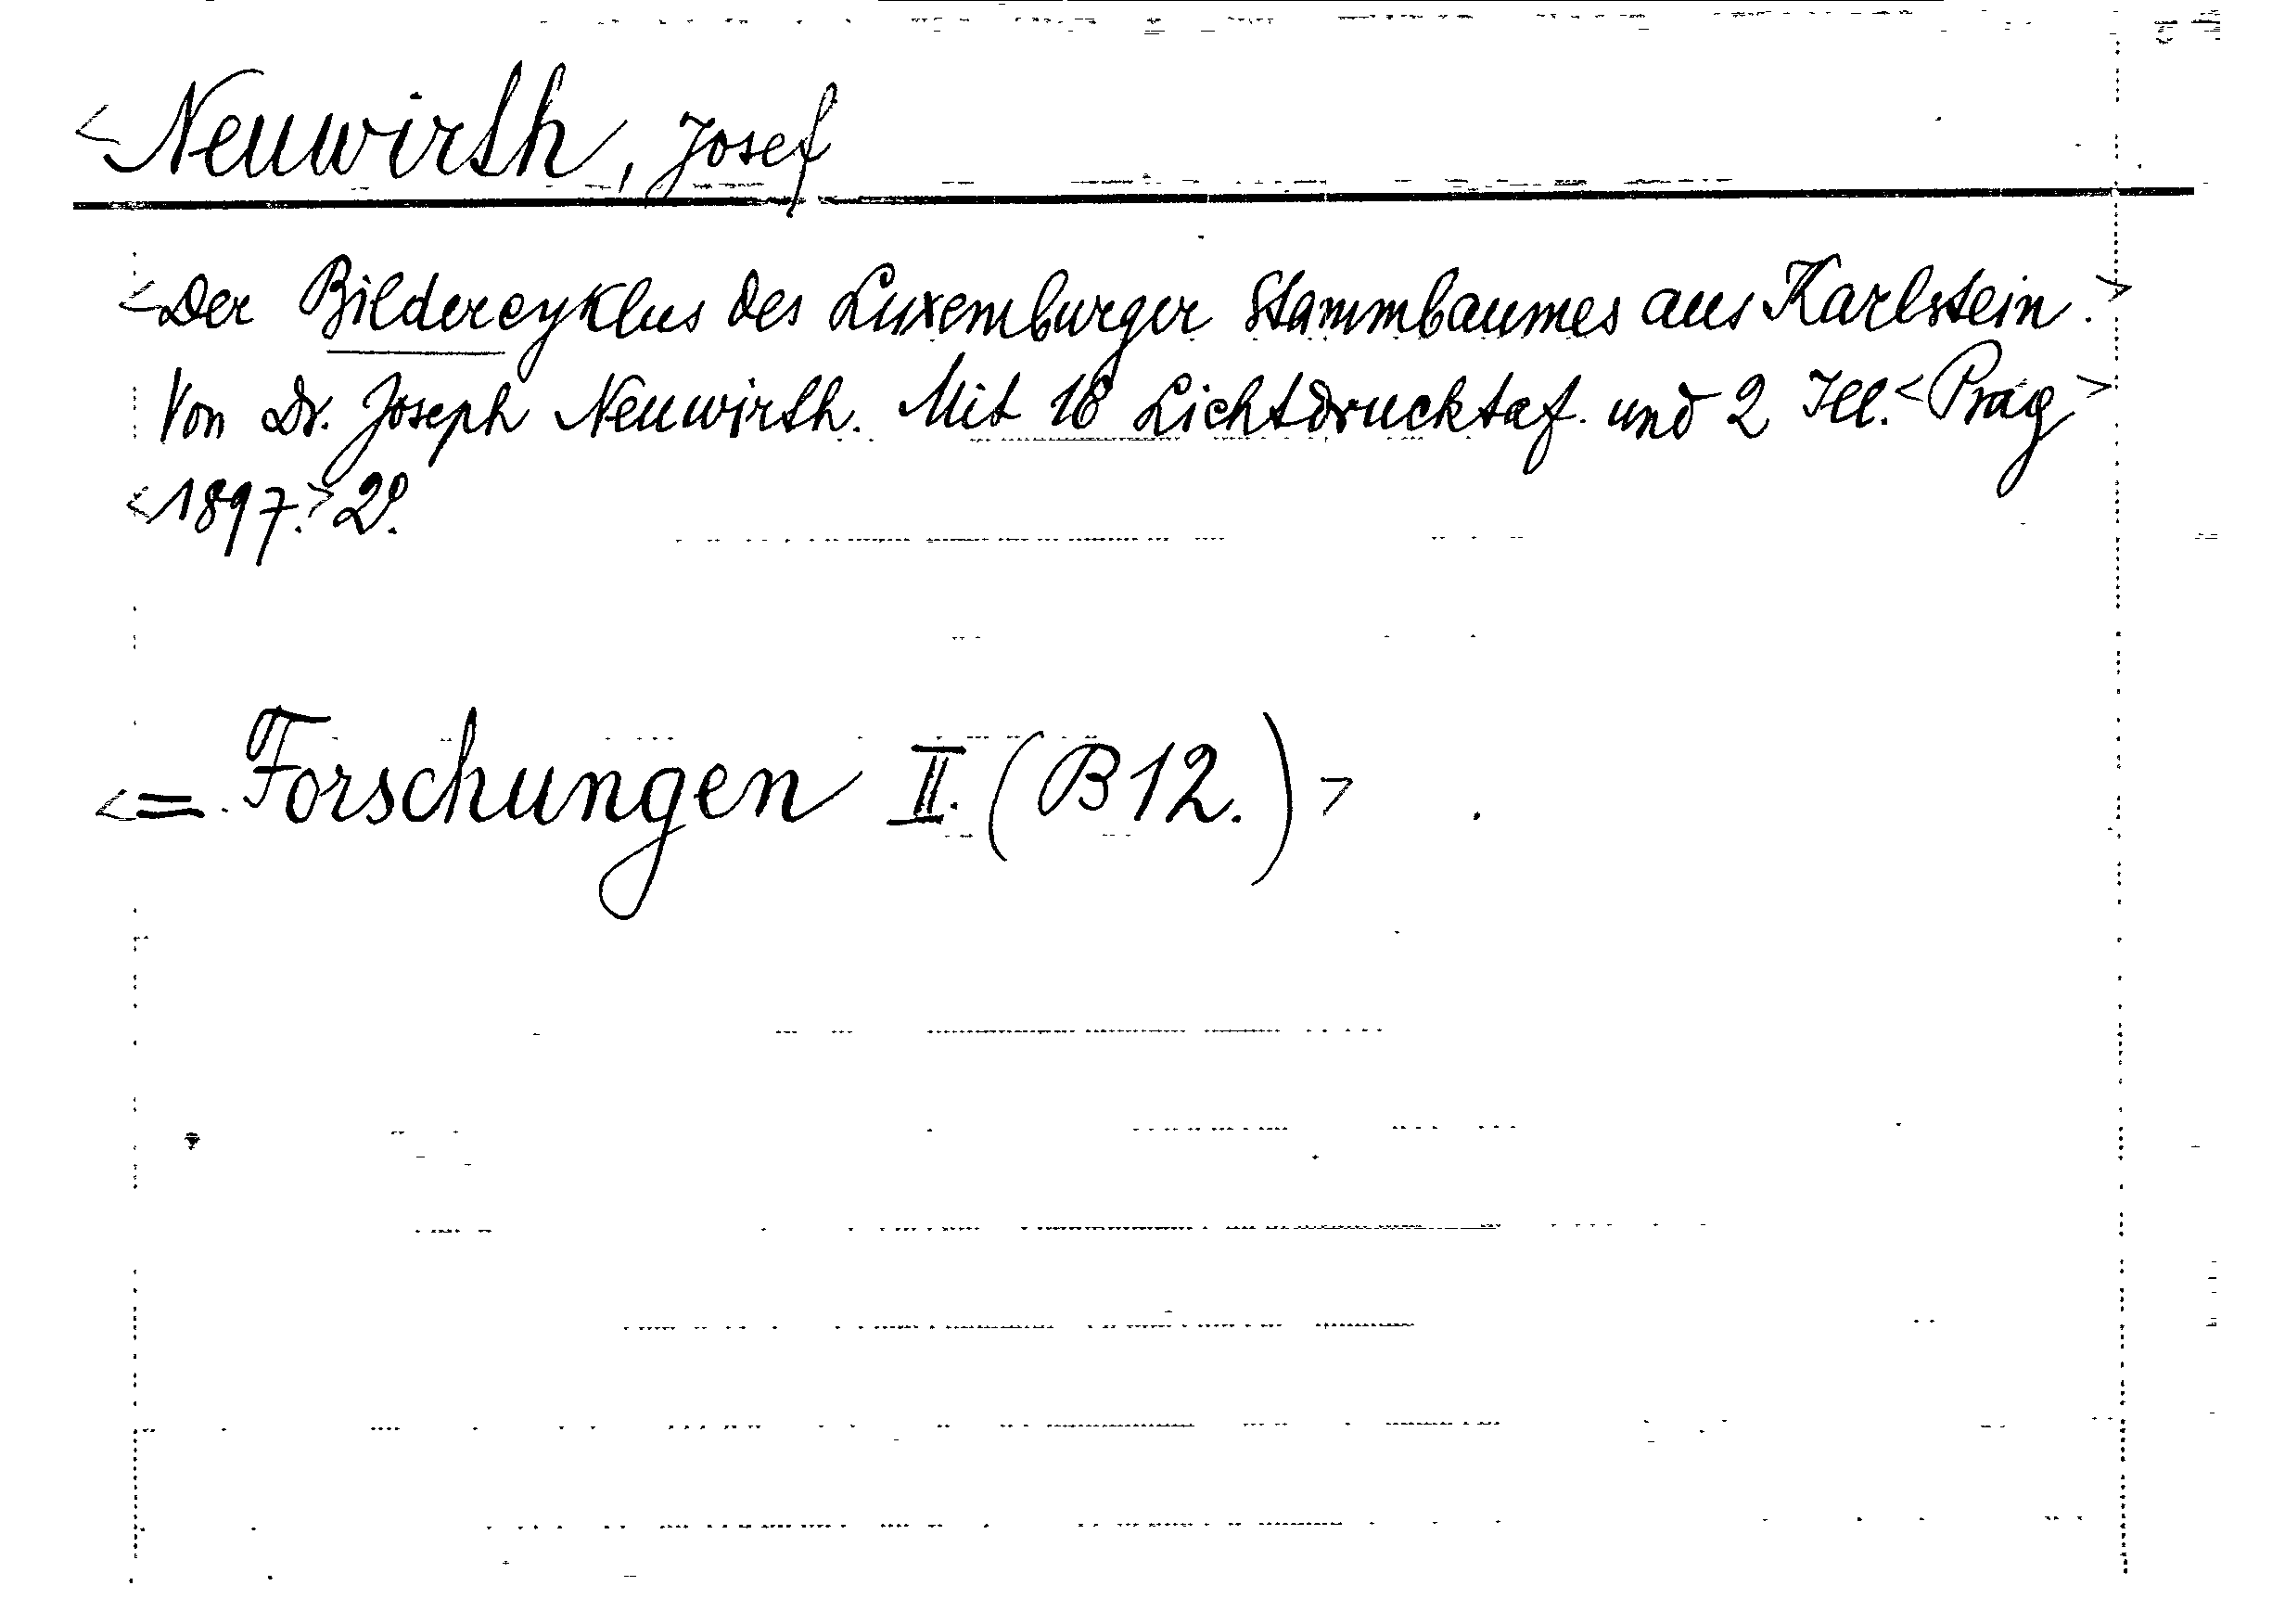 <Neuwirth, Josef
<Der Bildercyklus des Luxemburger Stammbaumes aus Karlstein.>
Von Dr. Joseph Neuwirth. Mit 16 Lichtdrucktaf. und 2 Ill. <Prag>
<1897.> 2º.
<= Forschungen II. (B12.)>